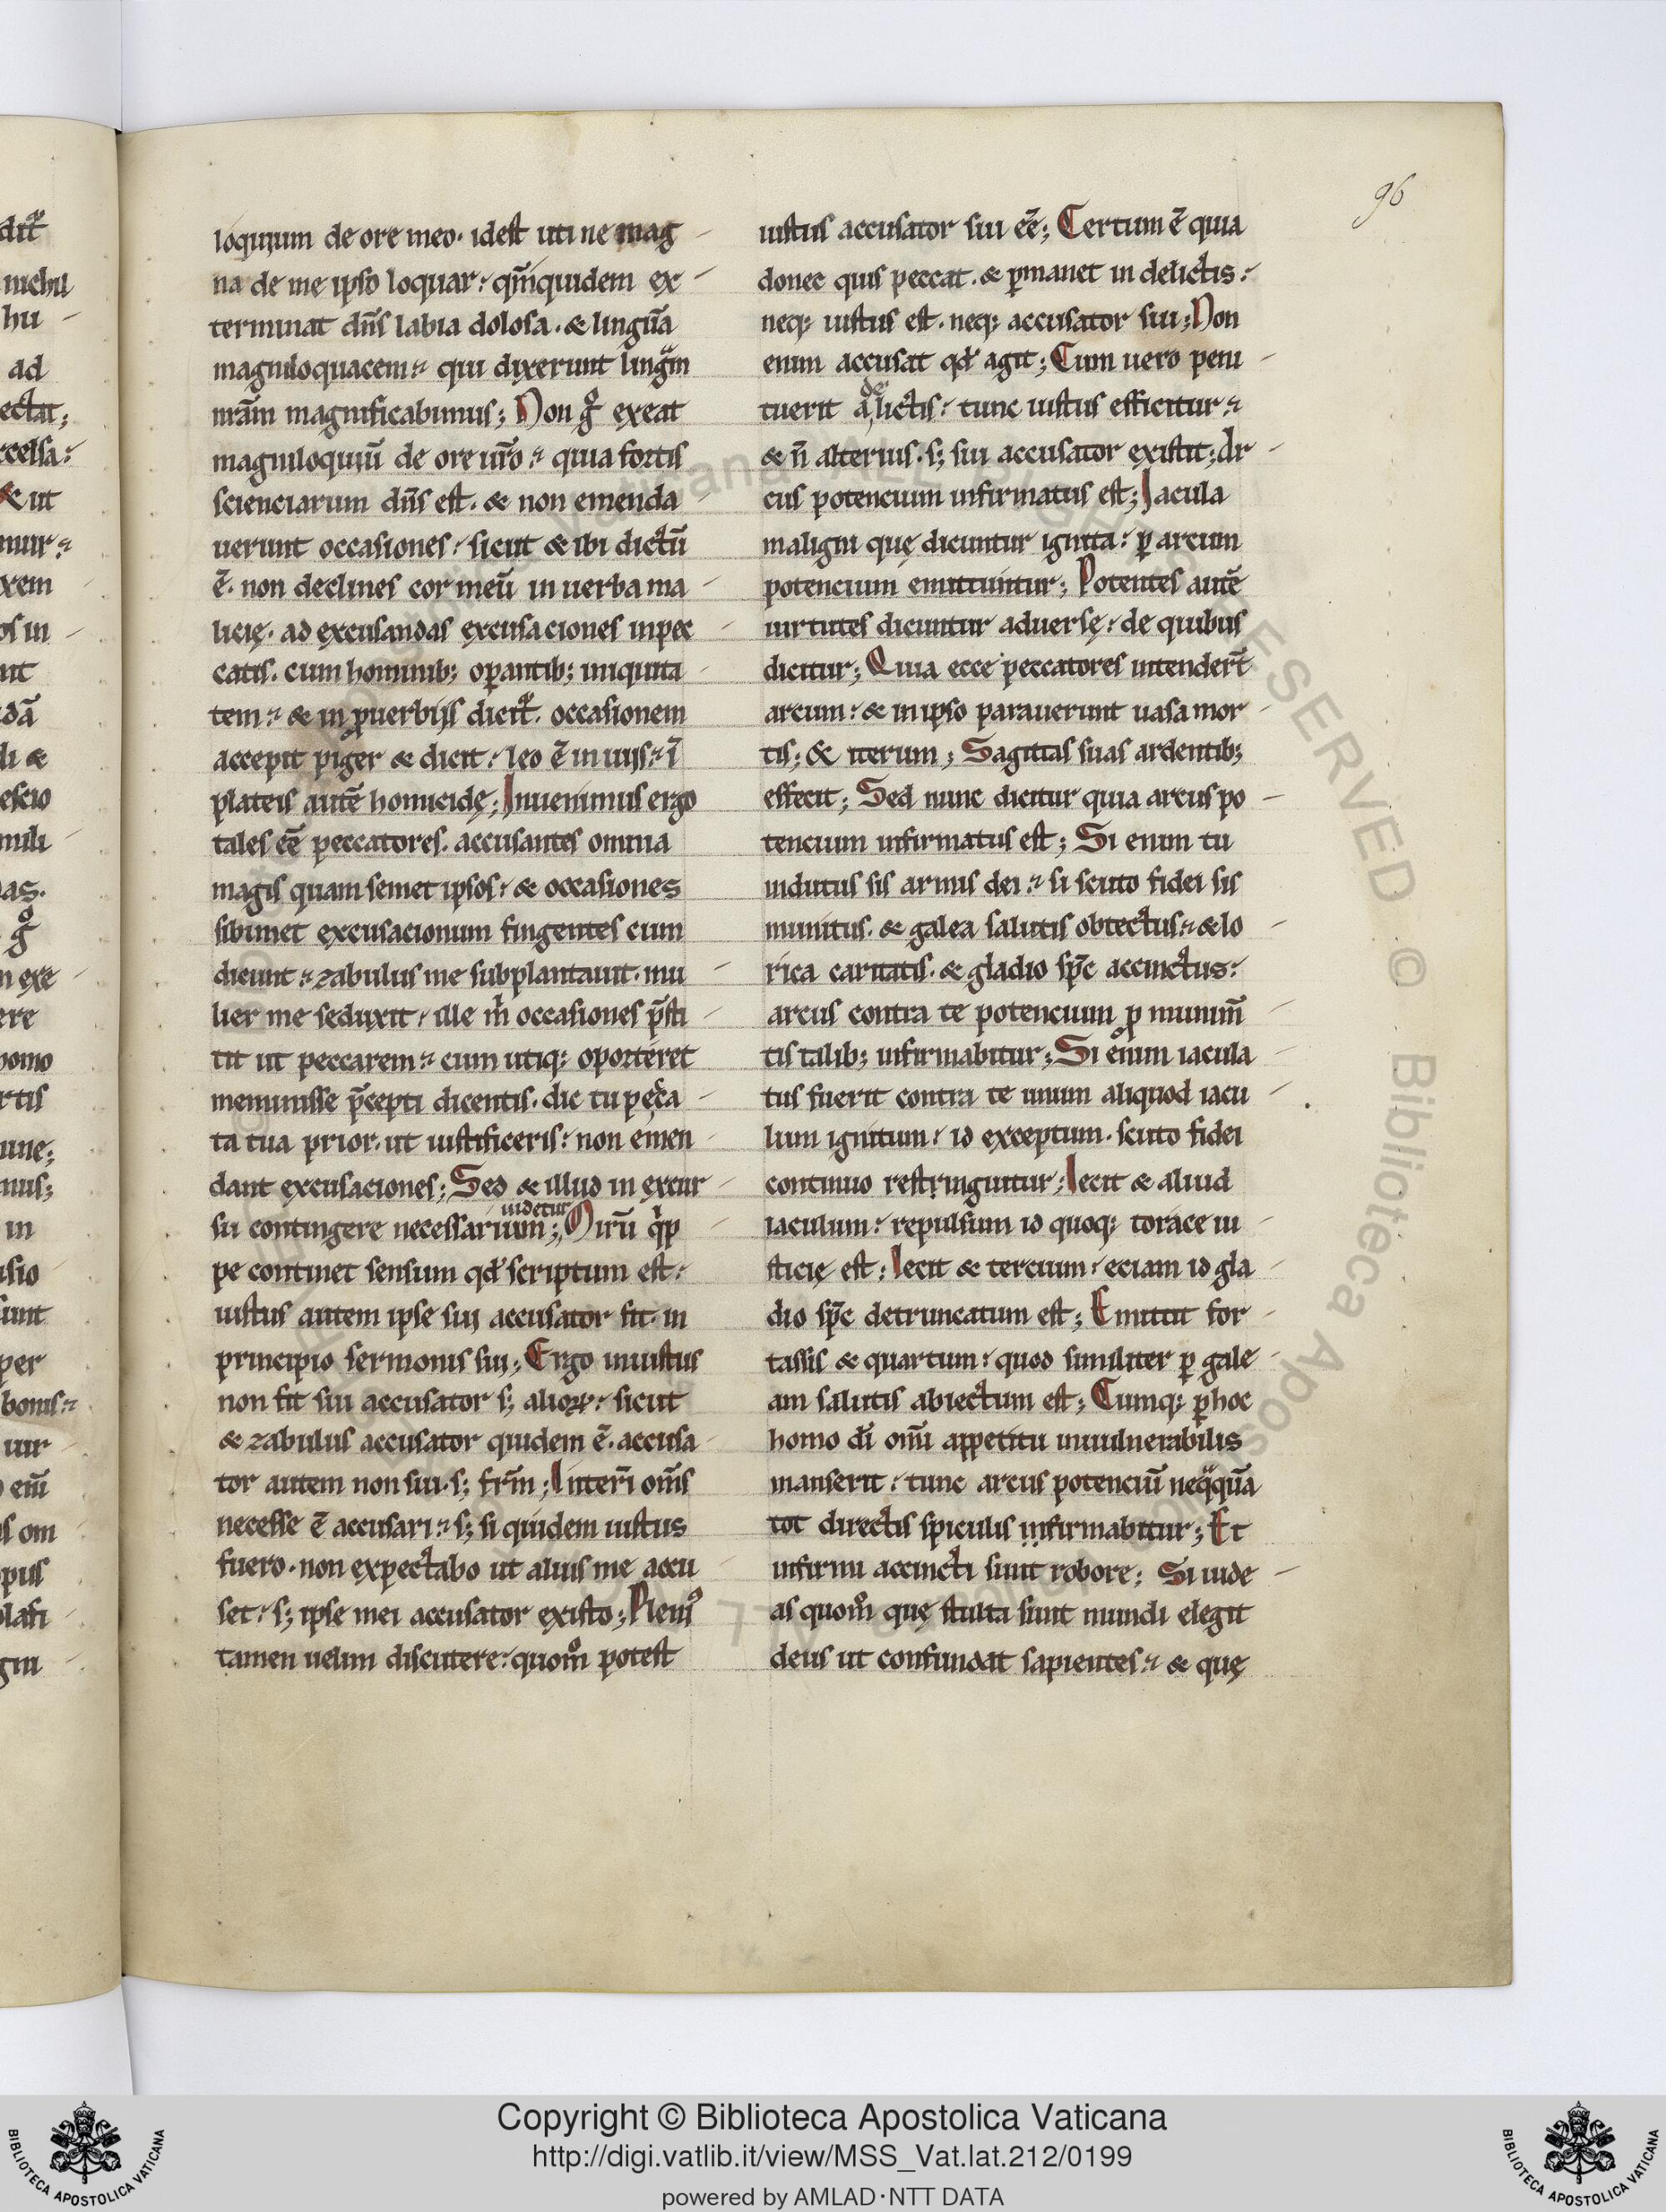 96
loquium de ore meo. idest uti ne mag
na de me ipso loquar. qm̄quidem ex
terminat dn̄s labia dolosa. & linguā
magniloquacem. qui dixerunt lingᵃm
nr̄am magnificabimus; Non gͦ exeat
magniloquiū de ore ur̄o. quia fortis
scienciarum dn̄s est. & non emenda
uerunt occasiones. sicut & ibi dictū
ē. non declines cor meū in uerba ma
licię. ad excusandas excusaciones inpec
catis. cum hominib; oꝑantib; iniquita
tem. & in ꝓuerbijs dicit᷑. occasionem
accepit piger & dicit. leo ē in uijs. ī
plateis autē homicidę; Inuenimus ergo
tales eē peccatores. accusantes omnia
magis quam semet ipsos. & occasiones
sibimet excusacionum fingentes cum
dicunt. zabulus me subplantauit. mu
lier me seduxit. ille m̍ occasiones p̄sti
tit ut peccarem. cum utiq; oporteret
meminisse p̄cepti dicentis. dic tu pecc̄a
ta tua prior. ut iustificeris. non emen
dant excusaciones; Sed & illud in excur
su contingere necessarium uidetur; Mirū qͥp
pe continet sensum qd̄ scriptum est.
iustus autem ipse sui accusator fit. in
principio sermonis sui; Ergo iniustus
non fit sui accusator s; alioꝝ. sicut
& zabulus accusator quidem ē. accusa
tor autem non sui. s; fr̄m; Interī om̄s
necesse ē accusari. s; si quidem iustus
fuero. non expectabo ut alius me accu
set. s; ipse mei accusator existo; Pleniꝰ
tamen uelim discutere. quom̊ potest
iustus accusator sui eē; Certum ē quia
donec quis peccat. & ꝑmanet in delictis.
neq; iustus est. neq; accusator sui; Non
enim accusat qd̄ agit; Cum uero peni
tuerit a delictis. tunc iustus efficitur.
& n̄ alterius. s; sui accusator existit; Ar
cus potencium infirmatus est; Iacula
maligni quę dicuntur ignita. ꝑ arcum
potencium emittuntur; Potentes autē
uirtutes dicuntur aduersę. de quibus
dicitur; Quia ecce peccatores intender̄t
arcum. & in ipso parauerunt uasa mor
tis; & iterum; Sagittas suas ardentib;
effecit; Sed nunc dicitur quia arcus po
tencium infirmatus est; Si enim tu
indutus sis armis dei. si scuto fidei sis
munitus. & galea salutis obtectus. & lo
rica caritatis. & gladio sp̄c accinctus.
arcus contra te potencium ꝓ munim̄
tis talib; infirmabitur; Si enim iacula
tus fuerit contra te unum aliquod iacu
lum ignitum. id exceptum. scuto fidei
continuo restringuitur; Iecit & aliud
iaculum. repulsum id quoq; torace iu
sticię est; Iecit & tercium. eciam id gla
dio sp̄c detruncatum est; Emittit for
tassis & quartum. quod similiter ꝑ gale
am salutis abiectum est; Cumq; ꝑ hoc
homo dī om̄i appetitu inuulnerabilis
manserit. tunc arcus potenciū neqᵃquā
tot directis spiculis infirmabitur; Et
infirmi accincti sunt robore; Si uide
as quom̊ quę stulta sunt mundi elegit
deus ut confundat sapientes. & quę
Copyright © Biblioteca Apostolica Vaticana
http://digi.vatlib.it/view/MSS_Vat.lat.212/0199
powered by AMLAD•NTT DATA
BIBLIOTECA APOSTOLICA VATICANA
BIBLIOTECA APOSTOLICA VATICANA